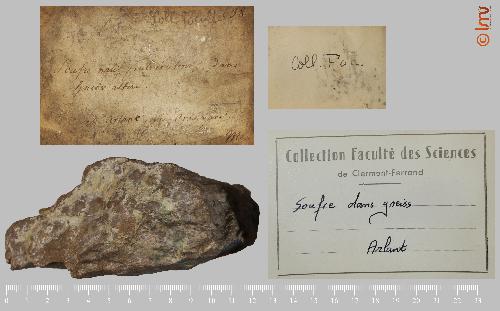 Coll. Faculté
Soufre natif pulvérulent dans
gneiss altéré
Coll. Fac.
Collection Faculté des Sciences
de Clermont-Ferrand
Soufre dans gneiss
Arlant
© lmv
0 1 2 3 4 5 6 7 8 9 10 11 12 13 14 15 16 17 18 19 20 21 22 23